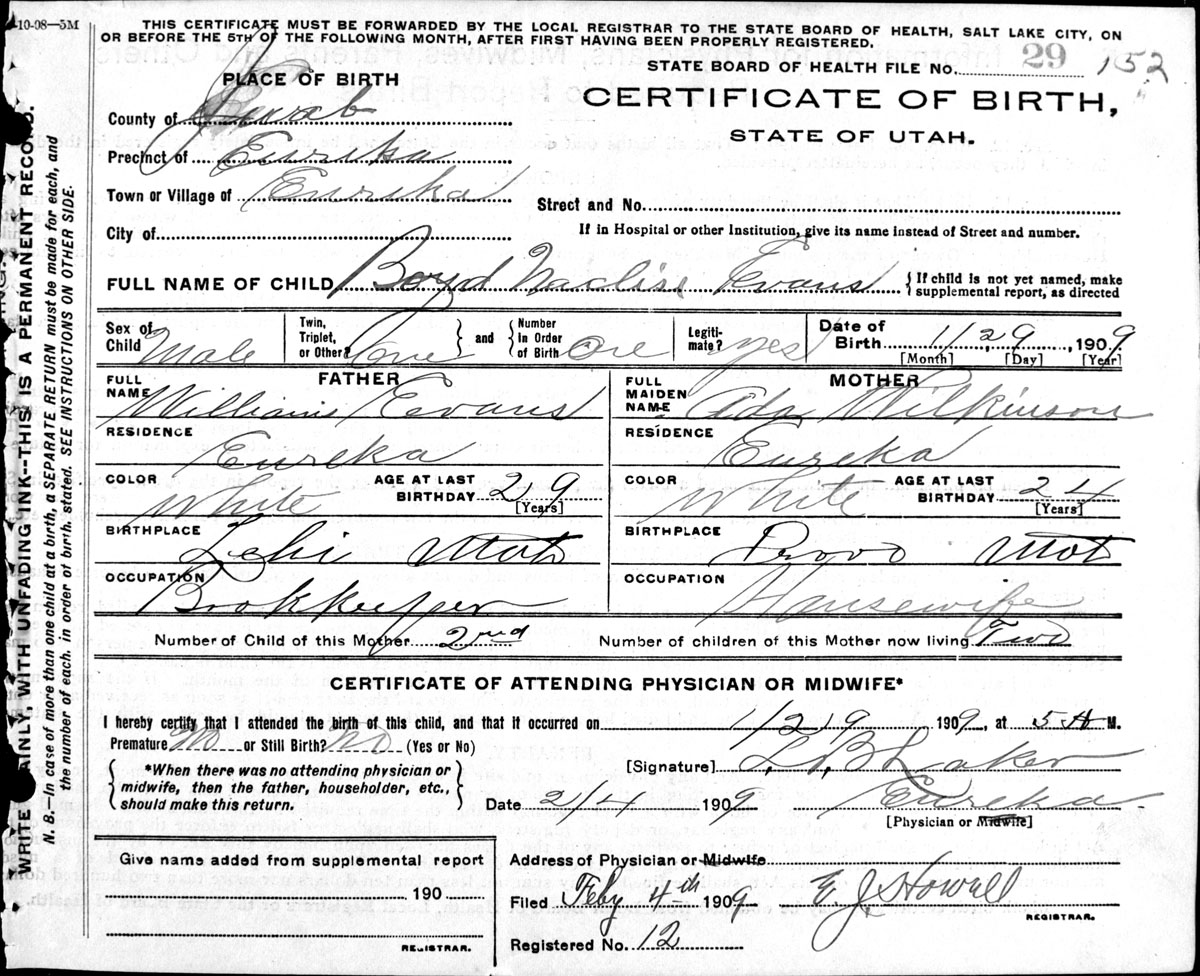 10-08—5M
THIS CERTIFICATE MUST BE FORWARDED BY THE LOCAL REGISTRAR TO THE STATE BOARD OF HEALTH, SALT LAKE CITY, ON
OR BEFORE THE 5TH OF THE FOLLOWING MONTH, AFTER FIRST HAVING BEEN PROPERLY REGISTERED.
STATE BOARD OF HEALTH FILE No. 29 152
PLACE OF BIRTH
CERTIFICATE OF BIRTH,
STATE OF UTAH.
County of Juab
Precinct of Eureka
Town or Village of Eureka
Street and No.
City of
If in Hospital or other Institution, give its name instead of Street and number.
FULL NAME OF CHILD Boyd Evans { If child is not yet named, make supplemental report, as directed
Sex of Child Male Twin, Triplet, or Other? One } and { Number In Order of Birth One Legiti- mate? yes Date of Birth 1/29, 1909
[Month] [Day] [Year]
FATHER
FULL NAME William Evans
RESIDENCE Eureka
COLOR White AGE AT LAST BIRTHDAY 29
[Years]
BIRTHPLACE Lehi Utah
OCCUPATION Bookkeeper
MOTHER
FULL MAIDEN NAME Ada Wilkinson
RESIDENCE Eureka
COLOR White AGE AT LAST BIRTHDAY 24
[Years]
BIRTHPLACE Provo Utah
OCCUPATION Housewife
Number of Child of this Mother 2nd Number of children of this Mother now living Two
CERTIFICATE OF ATTENDING PHYSICIAN OR MIDWIFE*
I hereby certify that I attended the birth of this child, and that it occurred on 1/29 1909, at 5 A M.
Premature No or Still Birth? No (Yes or No)
[Signature]
{ *When there was no attending physician or midwife, then the father, householder, etc., should make this return. }
Date 2/4 1909 Eureka
[Physician or Midwife]
Give name added from supplemental report
190
REGISTRAR.
Address of Physician or Midwife
Filed Feby 4th 1909 E. J. Howell
REGISTRAR.
Registered No. 12
WRITE PLAINLY, WITH UNFADING INK--THIS IS A PERMANENT RECORD.
N. B.—In case of more than one child at a birth, a SEPARATE RETURN must be made for each, and
the number of each, in order of birth, stated. SEE INSTRUCTIONS ON OTHER SIDE.